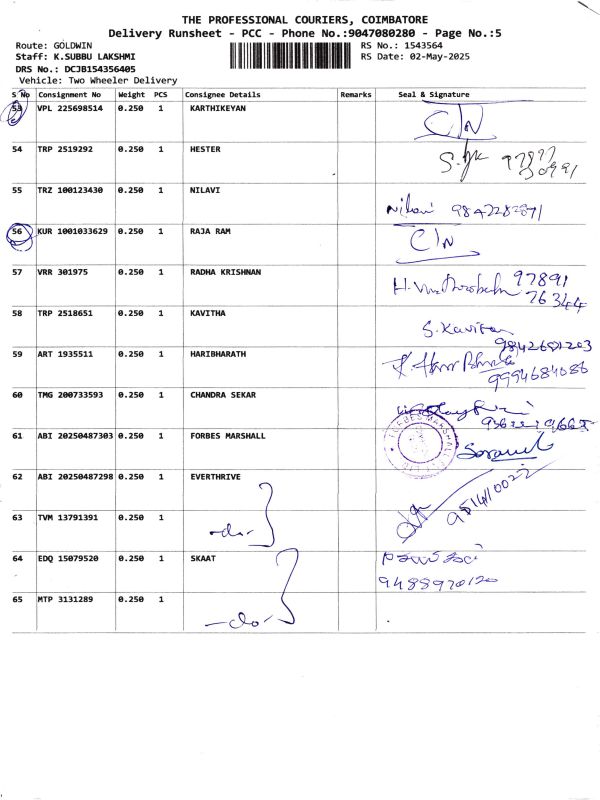 THE PROFESSIONAL COURIERS, COIMBATORE
Delivery Runsheet - PCC - Phone No.:9047080280 - Page No.:5
Route: GOLDWIN
RS No.: 1543564
Staff: K.SUBBU LAKSHMI
RS Date: 02-May-2025
DRS No.: DCJB154356405
Vehicle: Two Wheeler Delivery
S No Consignment No Weight PCS Consignee Details Remarks Seal & Signature
53 VPL 225698514 0.250 1 KARTHIKEYAN C/N
54 TRP 2519292 0.250 1 HESTER
55 TRZ 100123430 0.250 1 NILAVI Nilavi
56 KUR 1001033629 0.250 1 RAJA RAM C/N
57 VRR 301975 0.250 1 RADHA KRISHNAN 97891
76344
58 TRP 2518651 0.250 1 KAVITHA S. Kavitha
9842681203
59 ART 1935511 0.250 1 HARIBHARATH
9994684086
60 TMG 200733593 0.250 1 CHANDRA SEKAR
61 ABI 20250487303 0.250 1 FORBES MARSHALL
62 ABI 20250487298 0.250 1 EVERTHRIVE
9514110022
63 TVM 13791391 0.250 1 -do-
64 EDQ 15079520 0.250 1 SKAAT
9488970120
65 MTP 3131289 0.250 1 -do-